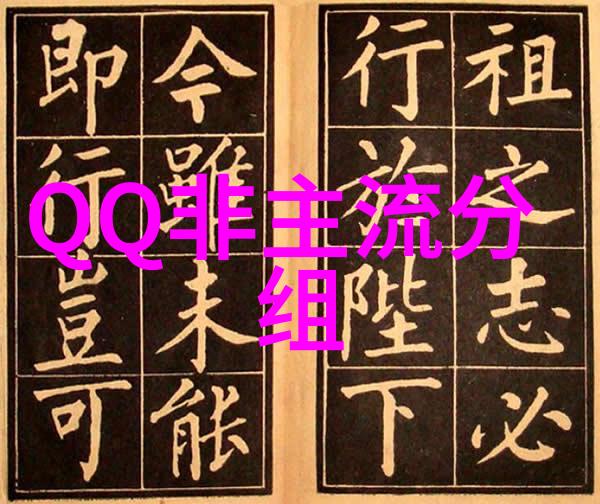 祖之志必
行於陛下
今雖未能
即行豈可
QQ非主流分
组